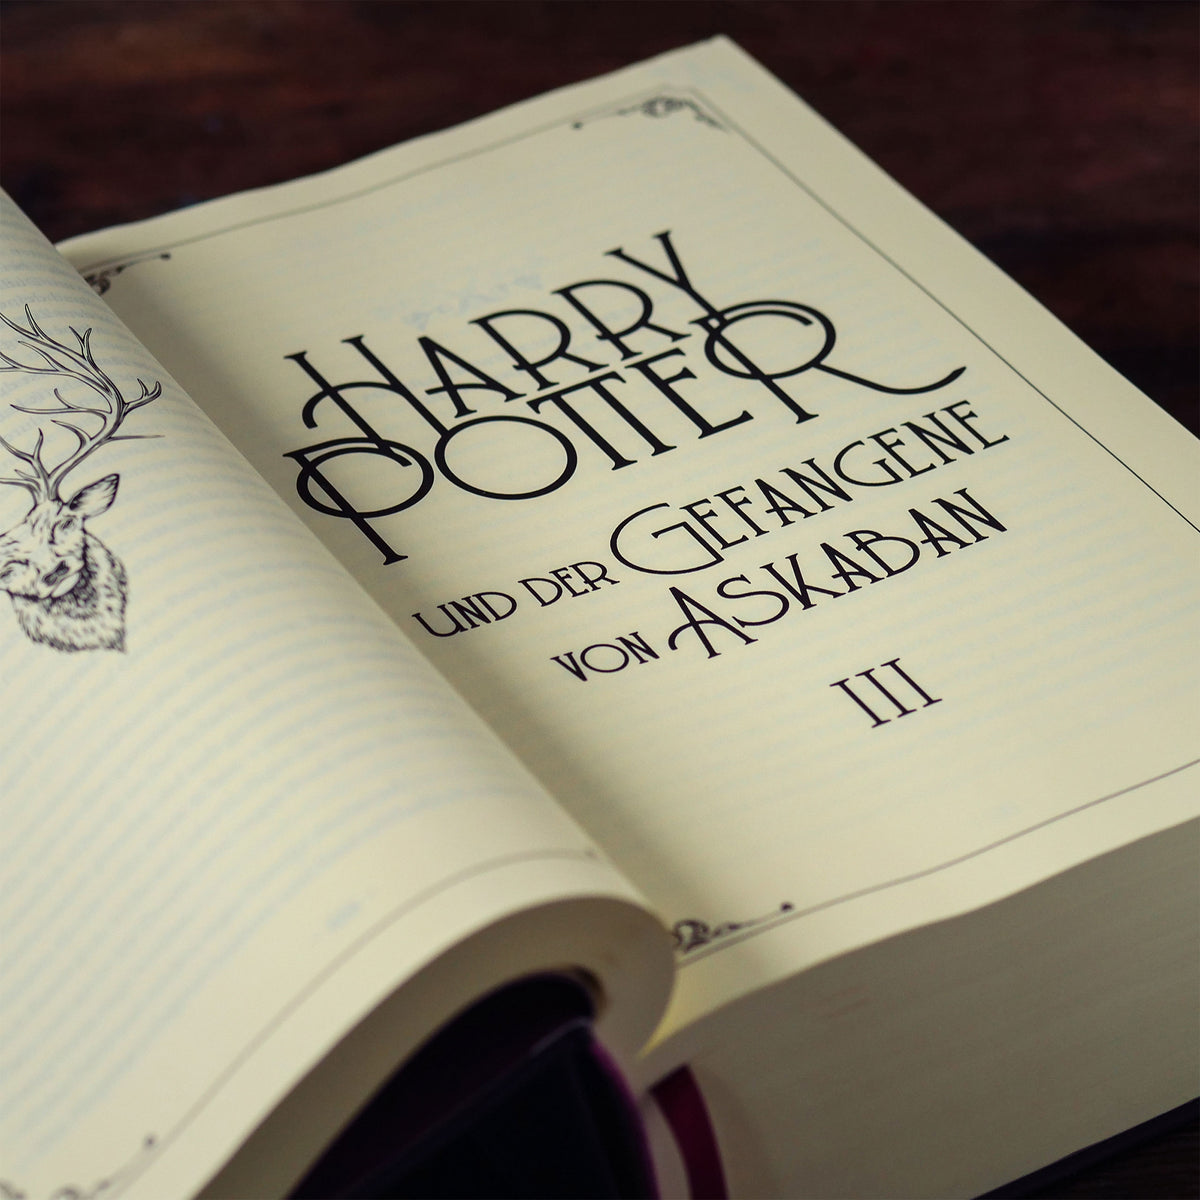 HARRY
POTTER
UND DER GEFANGENE
VON ASKABAN
III